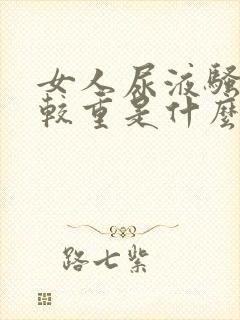 女人尿液骚
較重是什麼
路七紫